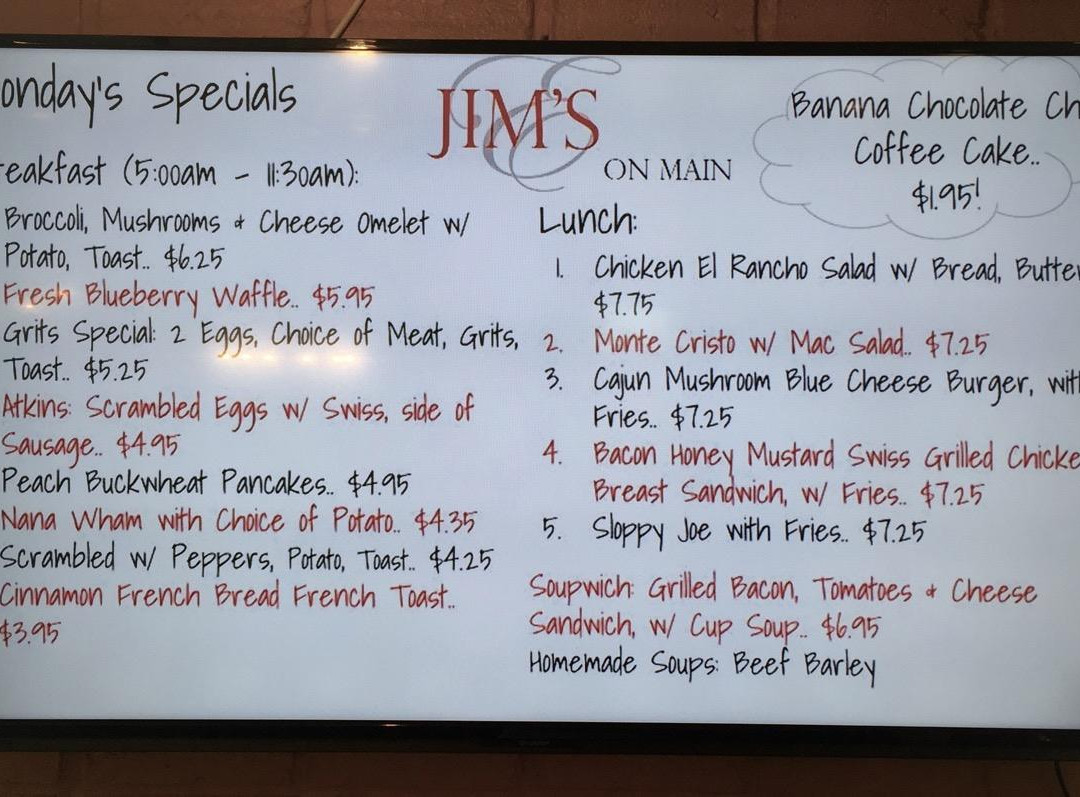 onday's Specials
JIM'S
ON MAIN
Banana Chocolate Ch
Coffee Cake..
$1.95!
eakfast (5:00am - 11:30am):
Broccoli, Mushrooms & Cheese Omelet w/
Potato, Toast.. $6.25
Fresh Blueberry Waffle.. $5.95
Grits Special: 2 Eggs, Choice of Meat, Grits,
Toast.. $5.25
Atkins: Scrambled Eggs w/ Swiss, side of
Sausage.. $4.95
Peach Buckwheat Pancakes.. $4.95
Nana Wham with Choice of Potato.. $4.35
Scrambled w/ Peppers, Potato, Toast.. $4.25
Cinnamon French Bread French Toast..
$3.95
Lunch:
1. Chicken El Rancho Salad w/ Bread, Butter
$7.75
2. Monte Cristo w/ Mac Salad.. $7.25
3. Cajun Mushroom Blue Cheese Burger, with
Fries.. $7.25
4. Bacon Honey Mustard Swiss Grilled Chicke
Breast Sandwich, w/ Fries.. $7.25
5. Sloppy Joe with Fries.. $7.25
Soupwich: Grilled Bacon, Tomatoes & Cheese
Sandwich, w/ Cup Soup.. $6.95
Homemade Soups: Beef Barley